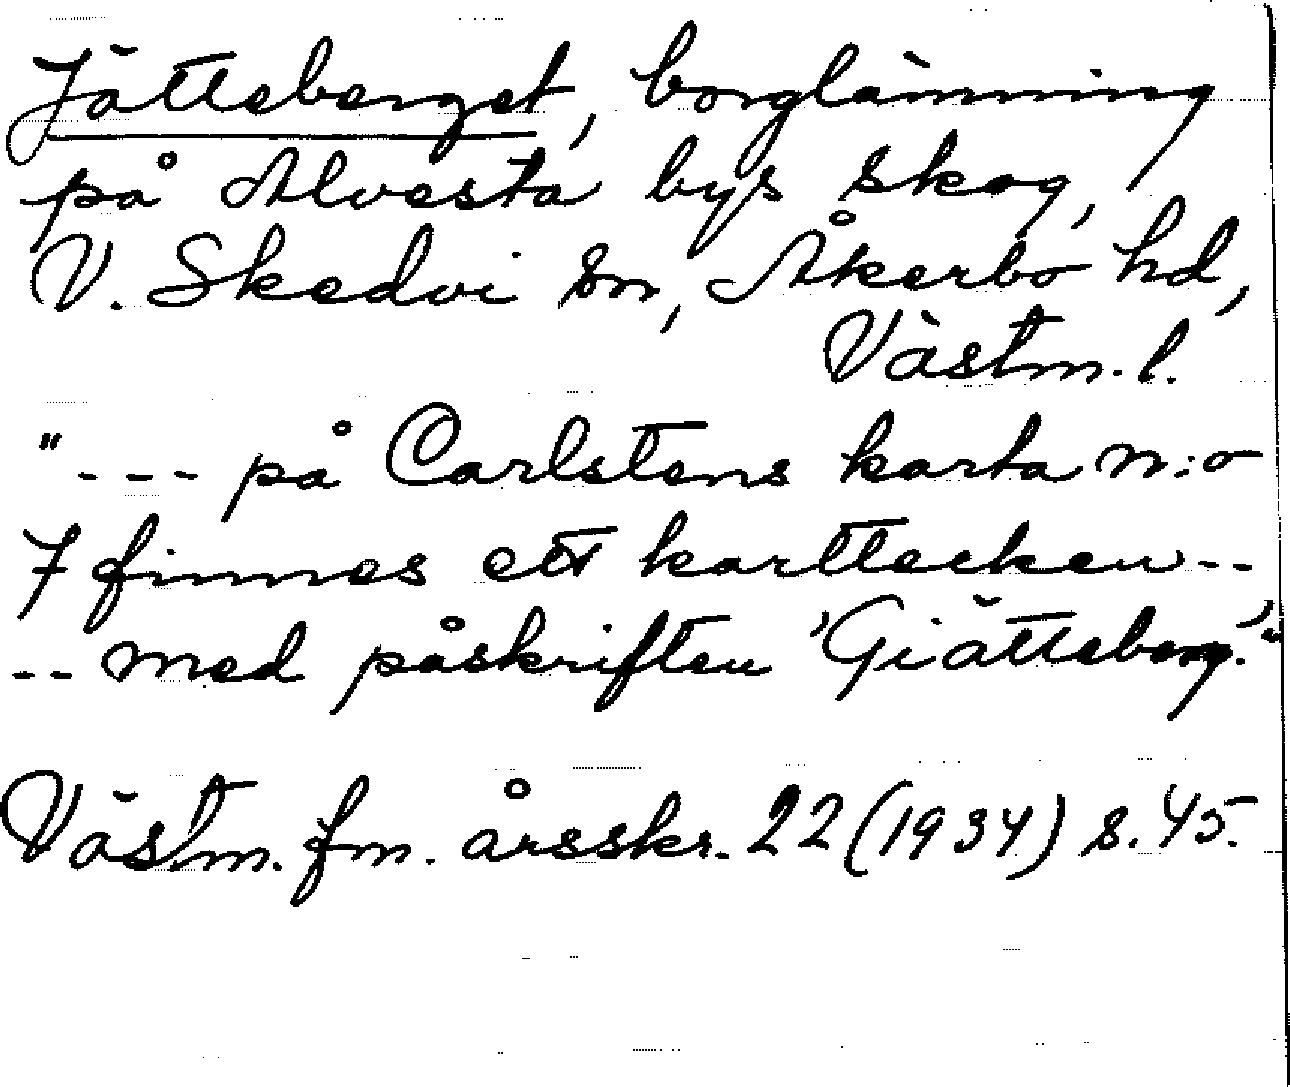 Jätteberget, borglämning
på Alvesta bys skog,
V. Skedvi sn, Åkerbo hd,
Västm. l.
"--- på Carlstens karta n:o
7 finnes ett karttecken --
-- med påskriften 'Giätteberg'."
Västm. fm. årsskr. 22 (1934) s. 45.